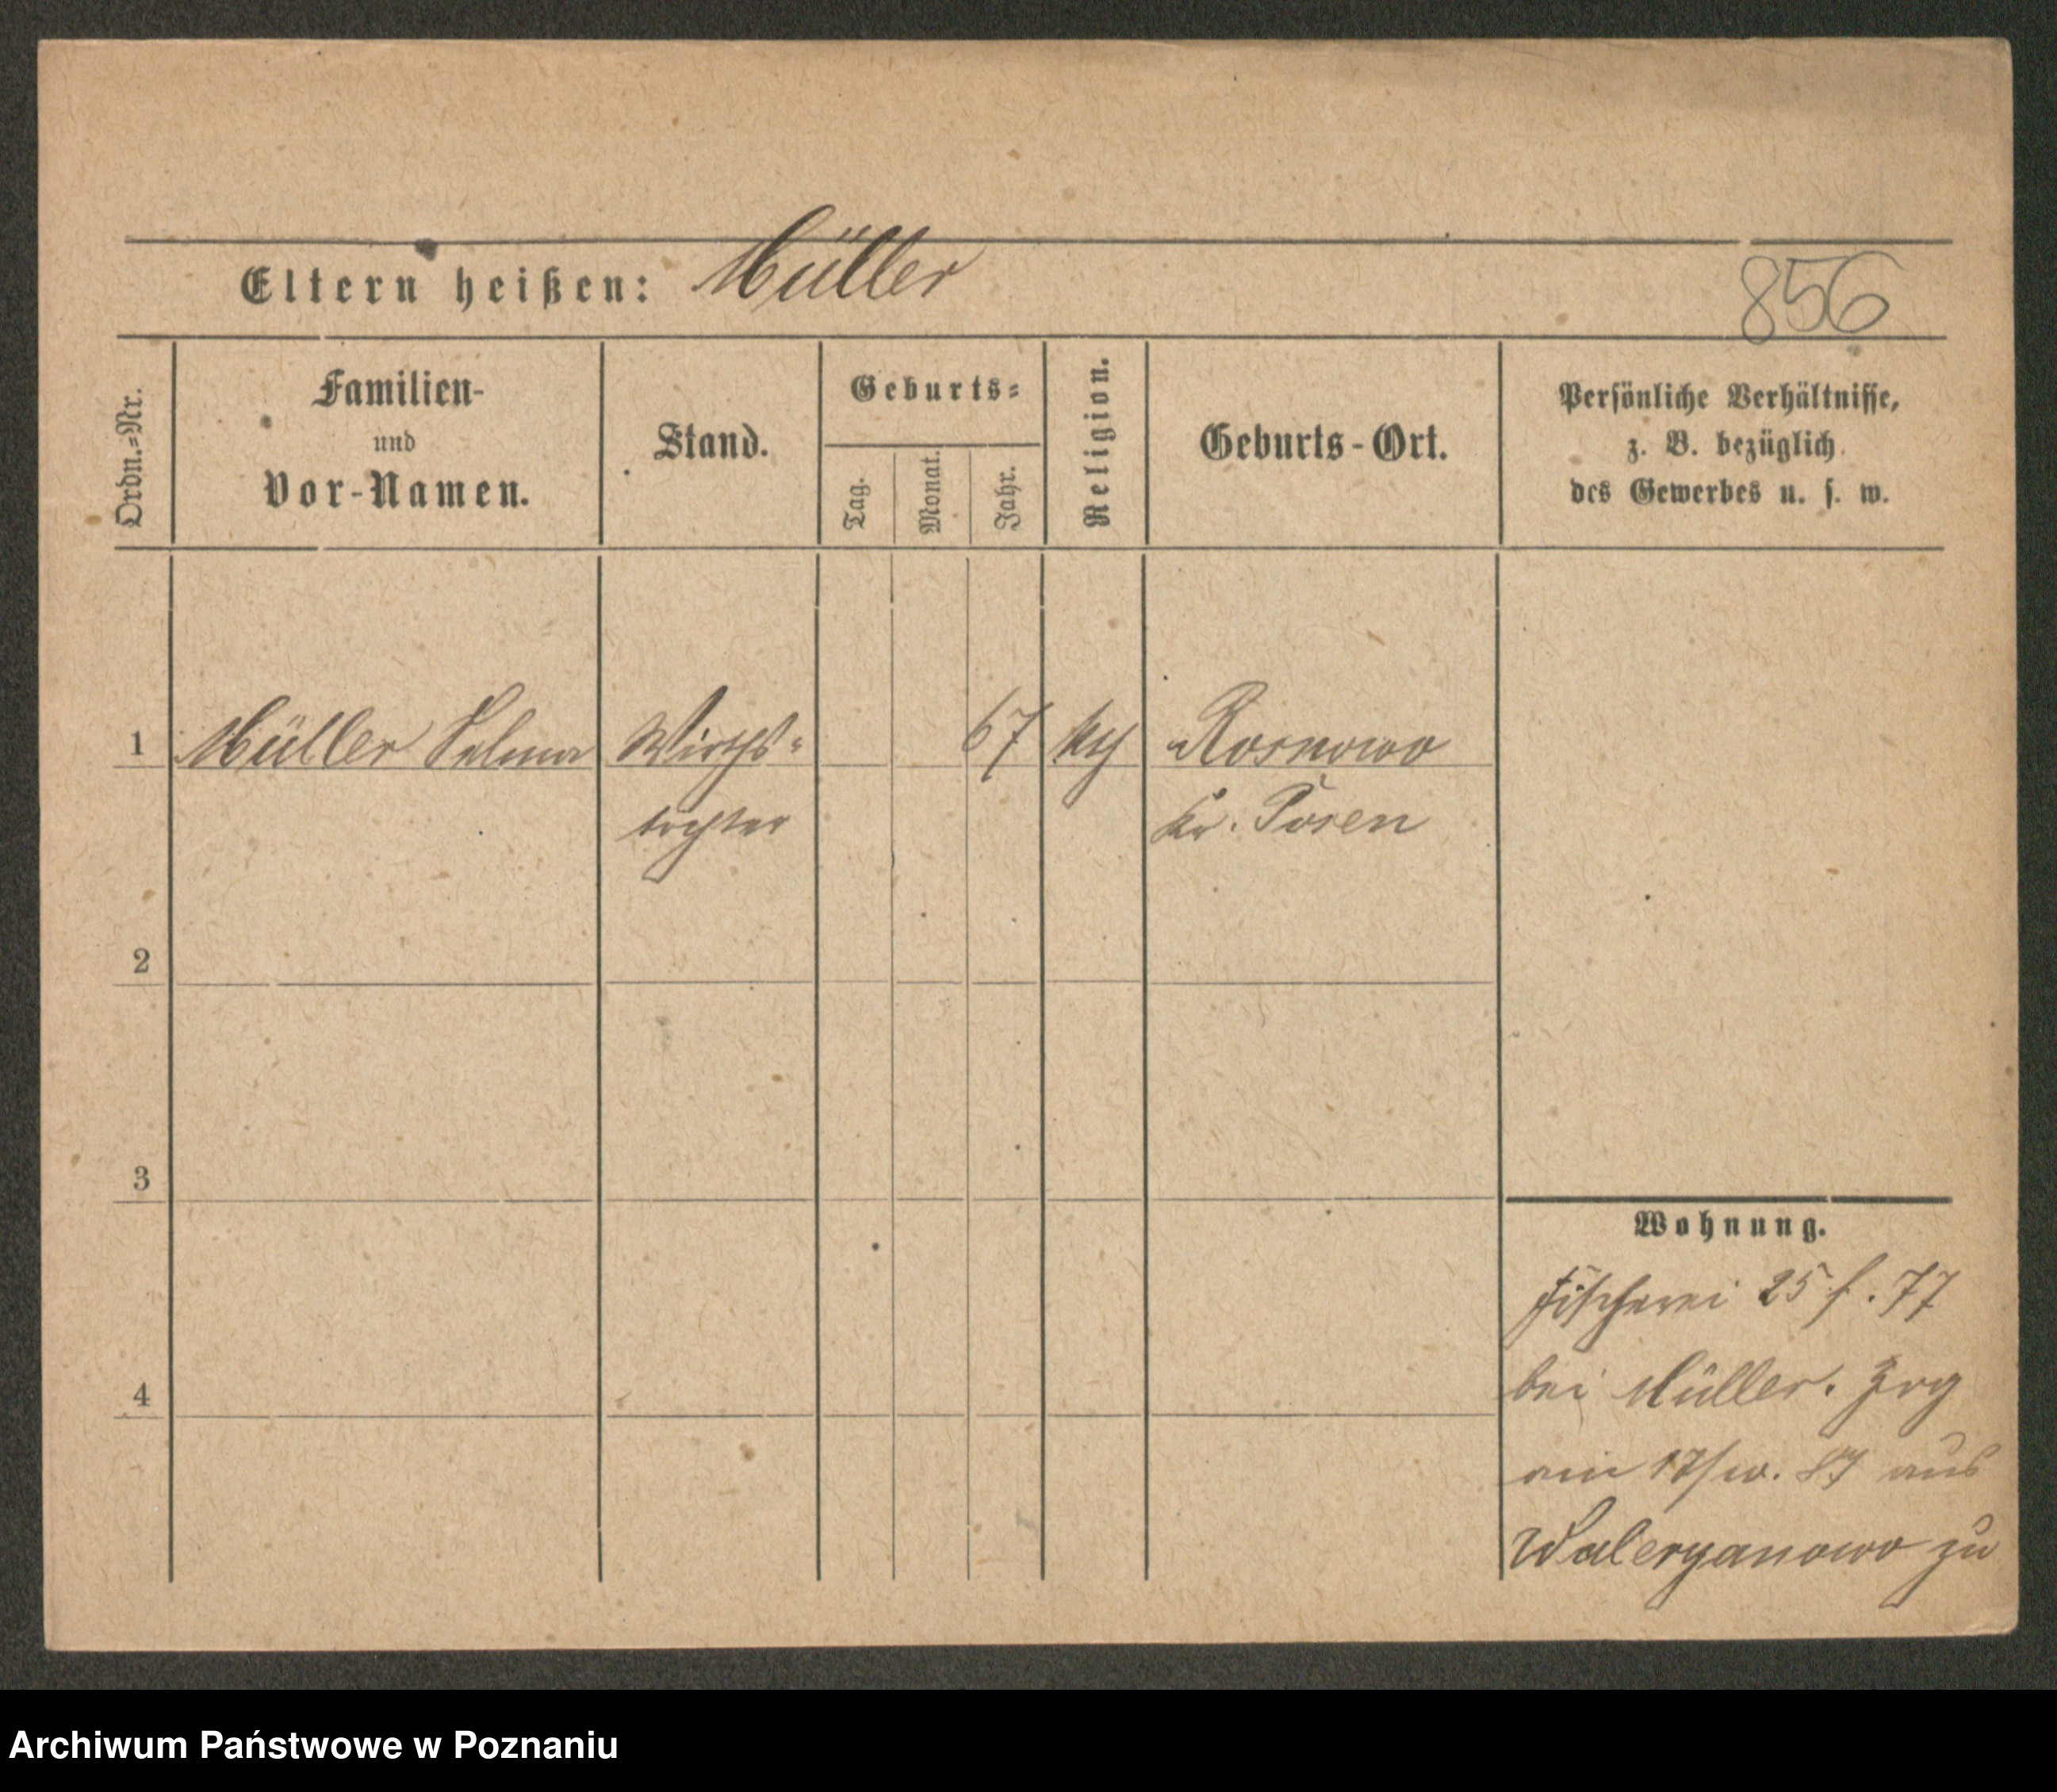 Eltern heißen: Müller
856
Ordn.=Nr.
Familien-
und
Vor-Namen.
Stand.
Geburts=
Tag.
Monat.
Jahr.
Religion.
Geburts-Ort.
Persönliche Verhältnisse,
z. B. bezüglich
des Gewerbes u. s. w.
1 Müller Selma Wirths= 67 kth Rosnowo
tochter Kr. Posen
2
3
4
Wohnung.
Fischerei 25 f. 77
bei Müller. Zog
am 17/10. 87 aus
Waleryanowo zu
Archiwum Państwowe w Poznaniu